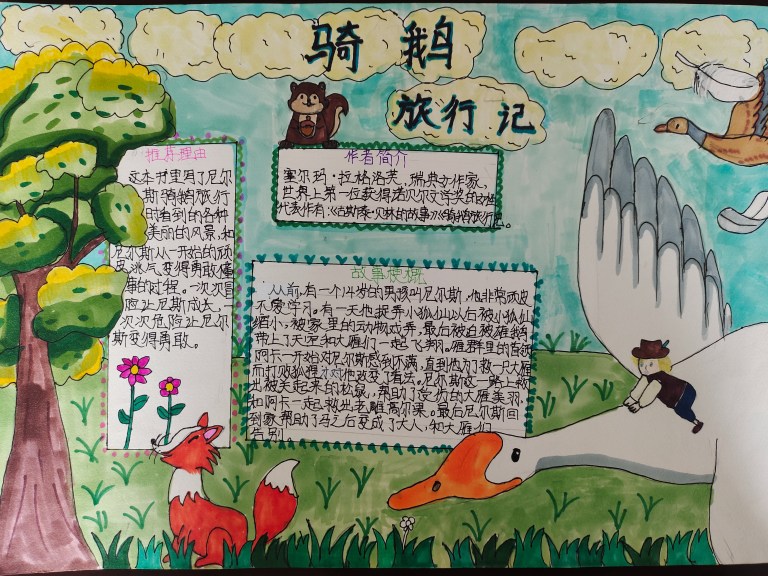 骑鹅
旅行记
推荐理由
这本书里写了尼尔
斯骑鹅旅行
时看到的各种
美丽的风景,和
尼尔斯从一开始的顽
皮淘气变得勇敢懂
事的过程。一次次冒
险让尼斯成长,一
次次危险让尼尔
斯变得勇敢。
作者简介
塞尔玛·拉格洛芙,瑞典女作家,
世界上第一位获得诺贝尔文学奖的女性
代表作有:《古斯泰·贝林的故事》《骑鹅旅行记》。
故事梗概
从前,有一个14岁的男孩叫尼尔斯,他非常顽皮
不爱学习。有一天他捉弄小狐仙以后被小狐仙
缩小,被家里的动物戏弄,最后被白雄鹅
带上了天空和大雁们一起飞翔。雁群里的首领
阿卡一开始对尼尔斯感到不满,直到他为了救一只大雁
而打败狐狸才对他改变了看法。尼尔斯这一路上救
出被关起来的松鼠,帮助了受伤的大雁美羽,
和阿卡一起救出老雕高尔果。最后尼尔斯回
到家帮助了马之后变成了大人,和大雁们
告别。